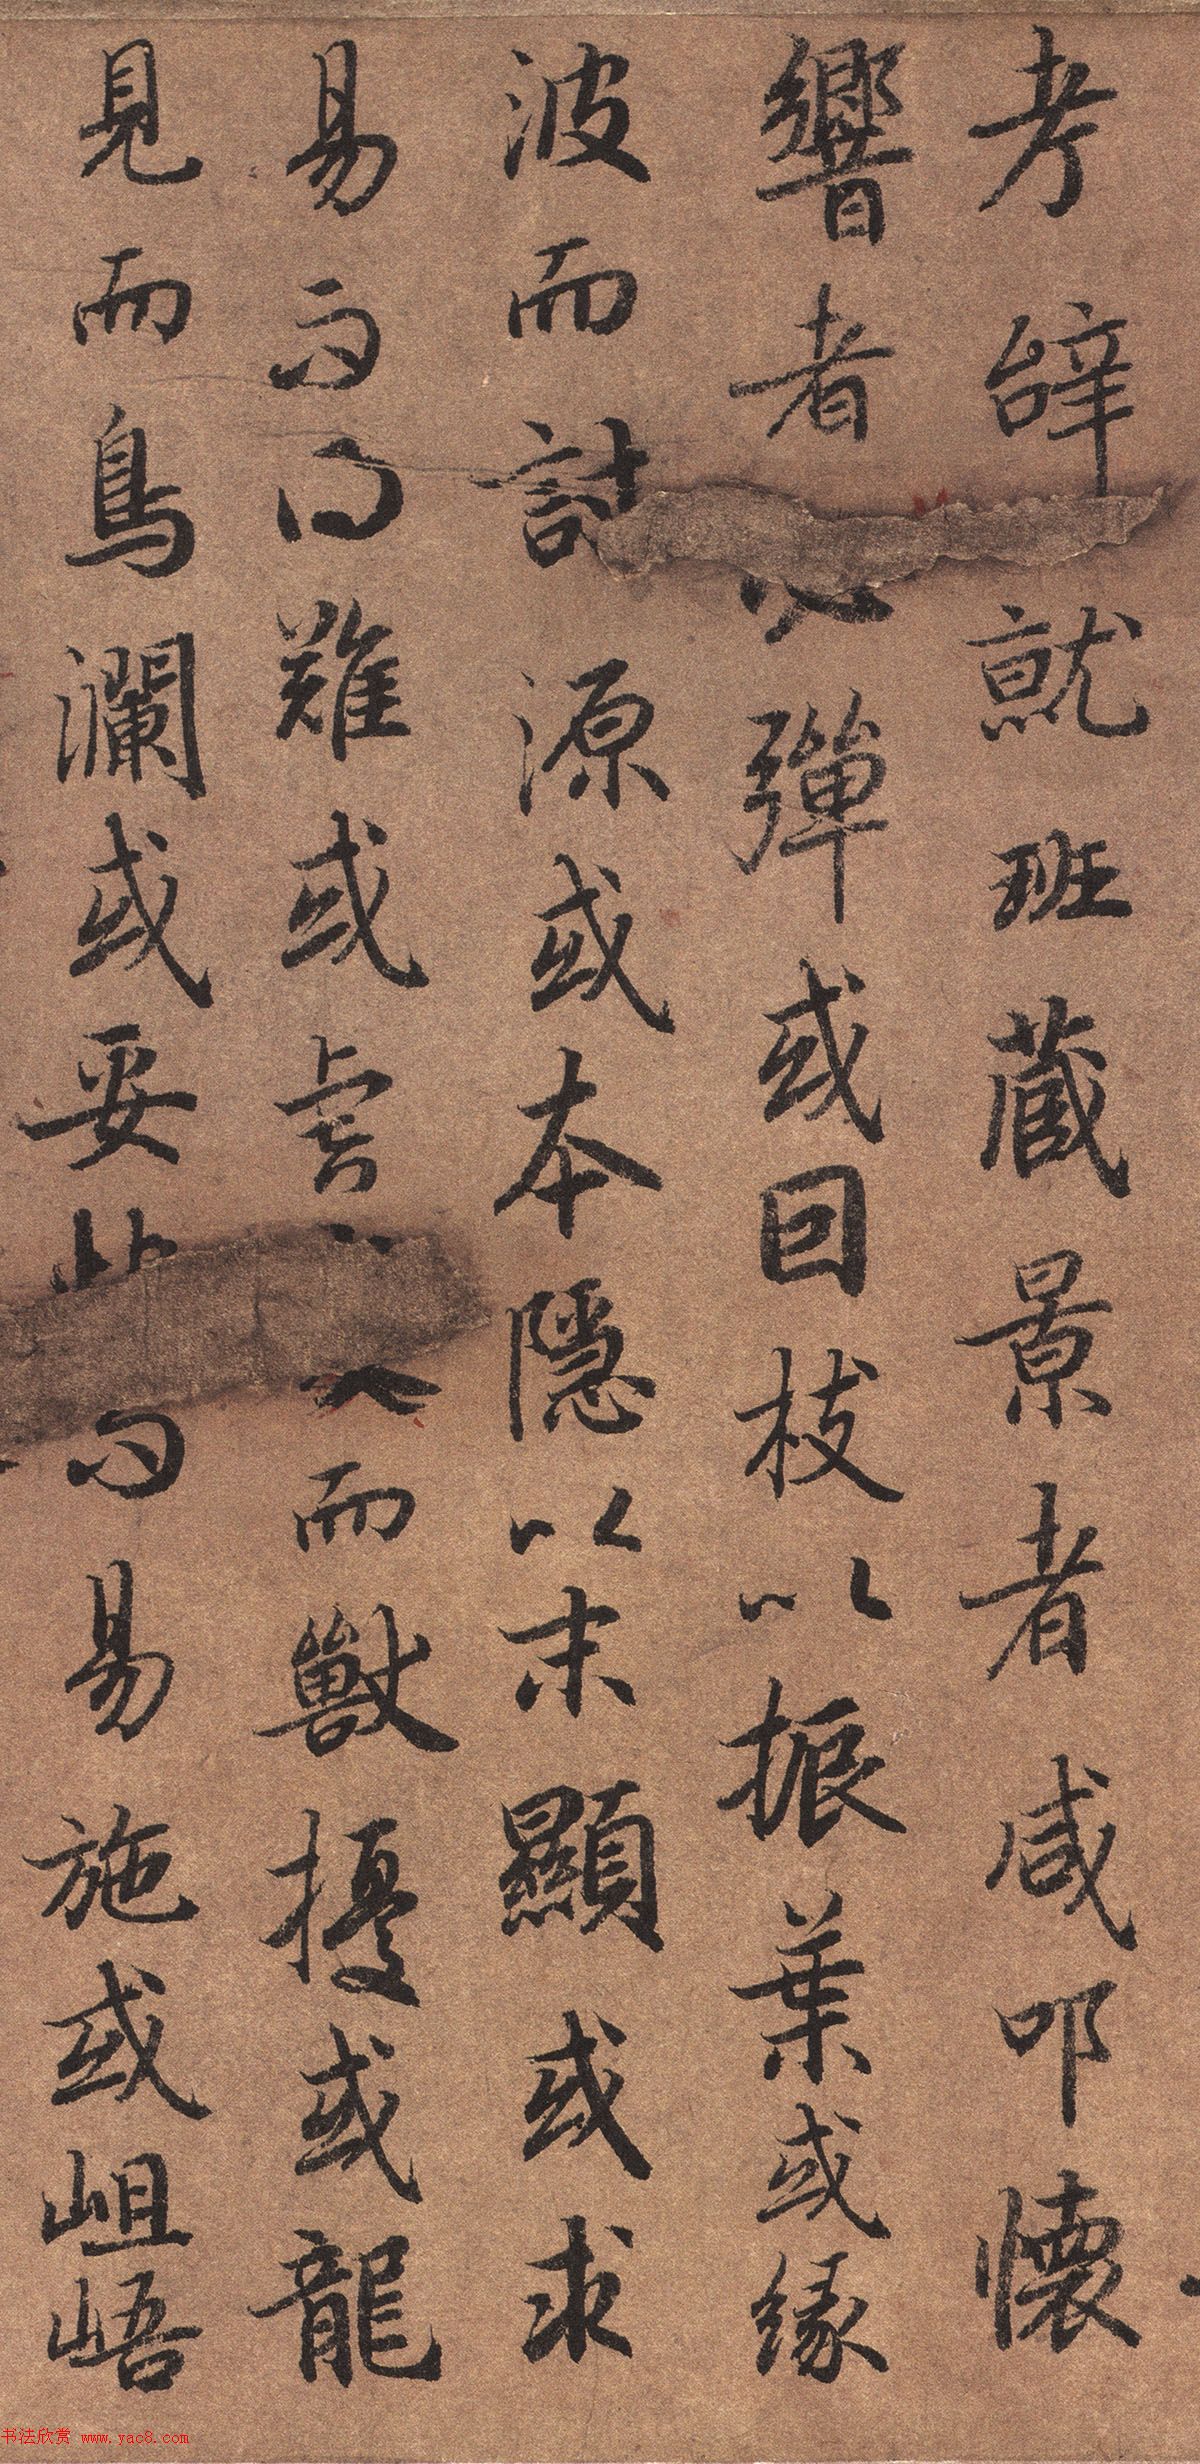 考辝就班藏景者咸叩懷
響者彈或囙枝以振葉或緣
波而討源或本隱以末顯或求
易而得難或虎而獸擾或龍
見而鳥瀾或妥而易施或岨峿
书法欣赏 www.yac8.com